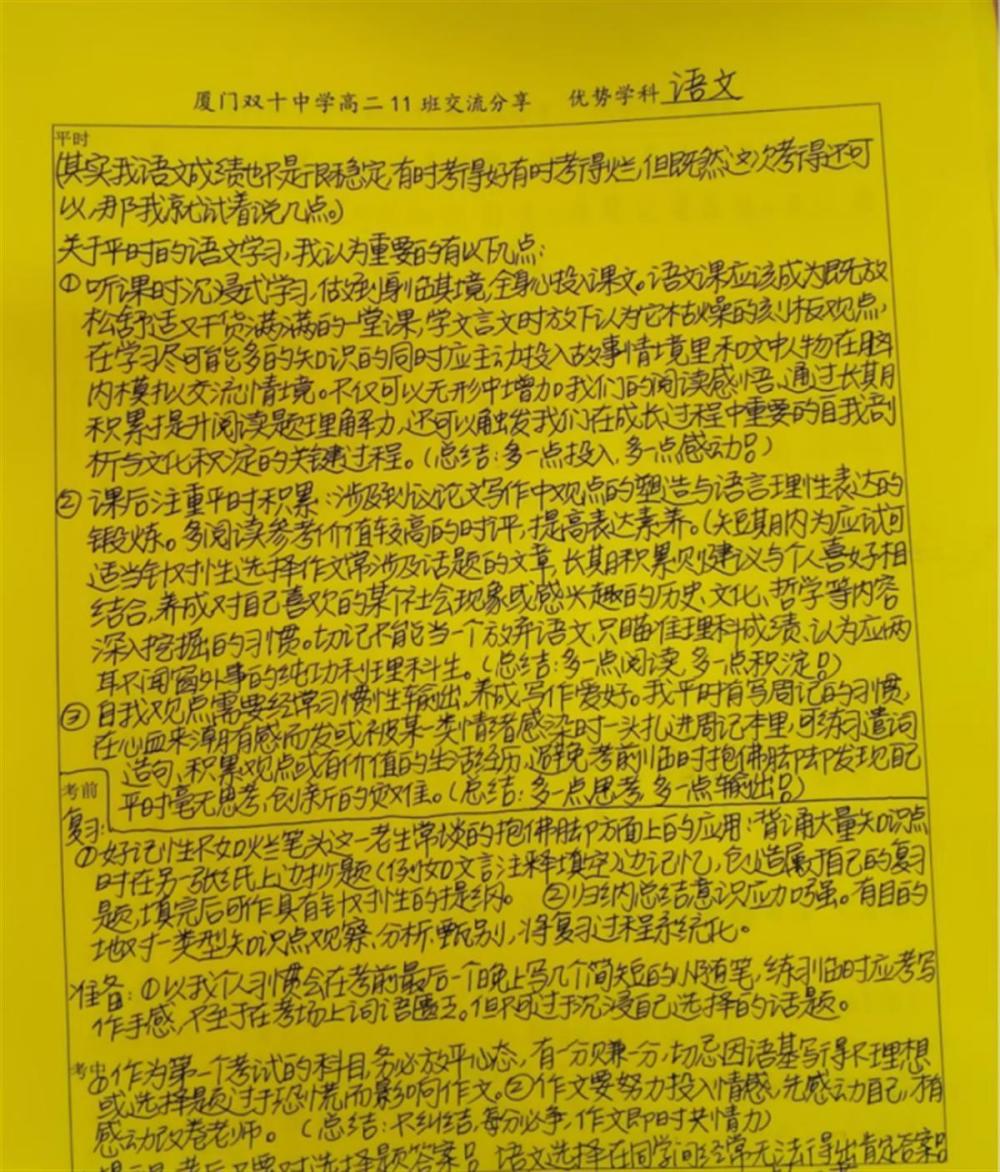 厦门双十中学高二11班交流分享 优势学科 语文
平时
(其实我语文成绩也不是很稳定,有时考得好有时考得烂,但既然这次考得还可
以,那我就试着说几点。)
关于平时的语文学习,我认为重要的有以下几点:
①听课时沉浸式学习,做到身临其境,全身心投入课文。语文课应该成为既放
松舒适又干货满满的一堂课,学文言文时放下认为它枯燥的刻板观点,
在学习尽可能多的知识的同时应主动投入故事情境里和文中人物在脑
内模拟交流情境。不仅可以无形中增加我们的阅读感悟、通过长期
积累提升阅读题理解力,还可以触发我们在成长过程中重要的自我剖
析与文化积淀的关键过程。(总结:多一点投入,多一点感动品)
②课后注重平时积累:涉及到议论文写作中观点的塑造与语言理性表达的
锻炼。多阅读参考价值较高的时评,提高表达素养。(短期内为应试可
适当针对性选择作文常涉及话题的文章,长期积累则建议与个人喜好相
结合,养成对自己喜欢的某个社会现象或感兴趣的历史、文化、哲学等内容
深入挖掘的习惯。切记不能当一个放弃语文、只瞄准理科成绩、认为应两
耳不闻窗外事的纯功利理科生。(总结:多一点阅读,多一点积淀品)
③自我观点需要经常习惯性输出,养成写作爱好。我平时有写周记的习惯,
在心血来潮有感而发或被某一类情绪感染时一头扎进周记本里,可练习遣词
造句、积累观点或有价值的生活经历,避免考前临时抱佛脚却发现自己
平时毫无思考,创新的困难。(总结:多一点思考,多一点输出品)
考前
复习:
①好记性不如烂笔头这一老生常谈的抱佛脚方面上的应用:背诵大量知识点
时在另一张纸上边抄题(例如文言注释填空)边记忆,创造属于自己的复习
题,填完后可作具有针对性的提纲。 ②归纳总结意识应加强。有目的
地对一类型知识点观察、分析、甄别,将复习过程系统化。
准备:①以我个人习惯会在考前最后一个晚上写几个简短的小随笔,练习临时应考写
作手感,不至于在考场上词语匮乏。但不可过于沉浸自己选择的话题。
考中
①作为第一个考试的科目,务必放平心态,有一分赚一分,切忌因语基写得不理想
或选择题过于恐慌而影响作文。②作文要努力投入情感,先感动自己,才有
感动改卷老师。(总结:不纠结,每分必争,作文即时共情力)
考后只要对选择题答案品,语文选择在同学间经常无法得出肯定答案品